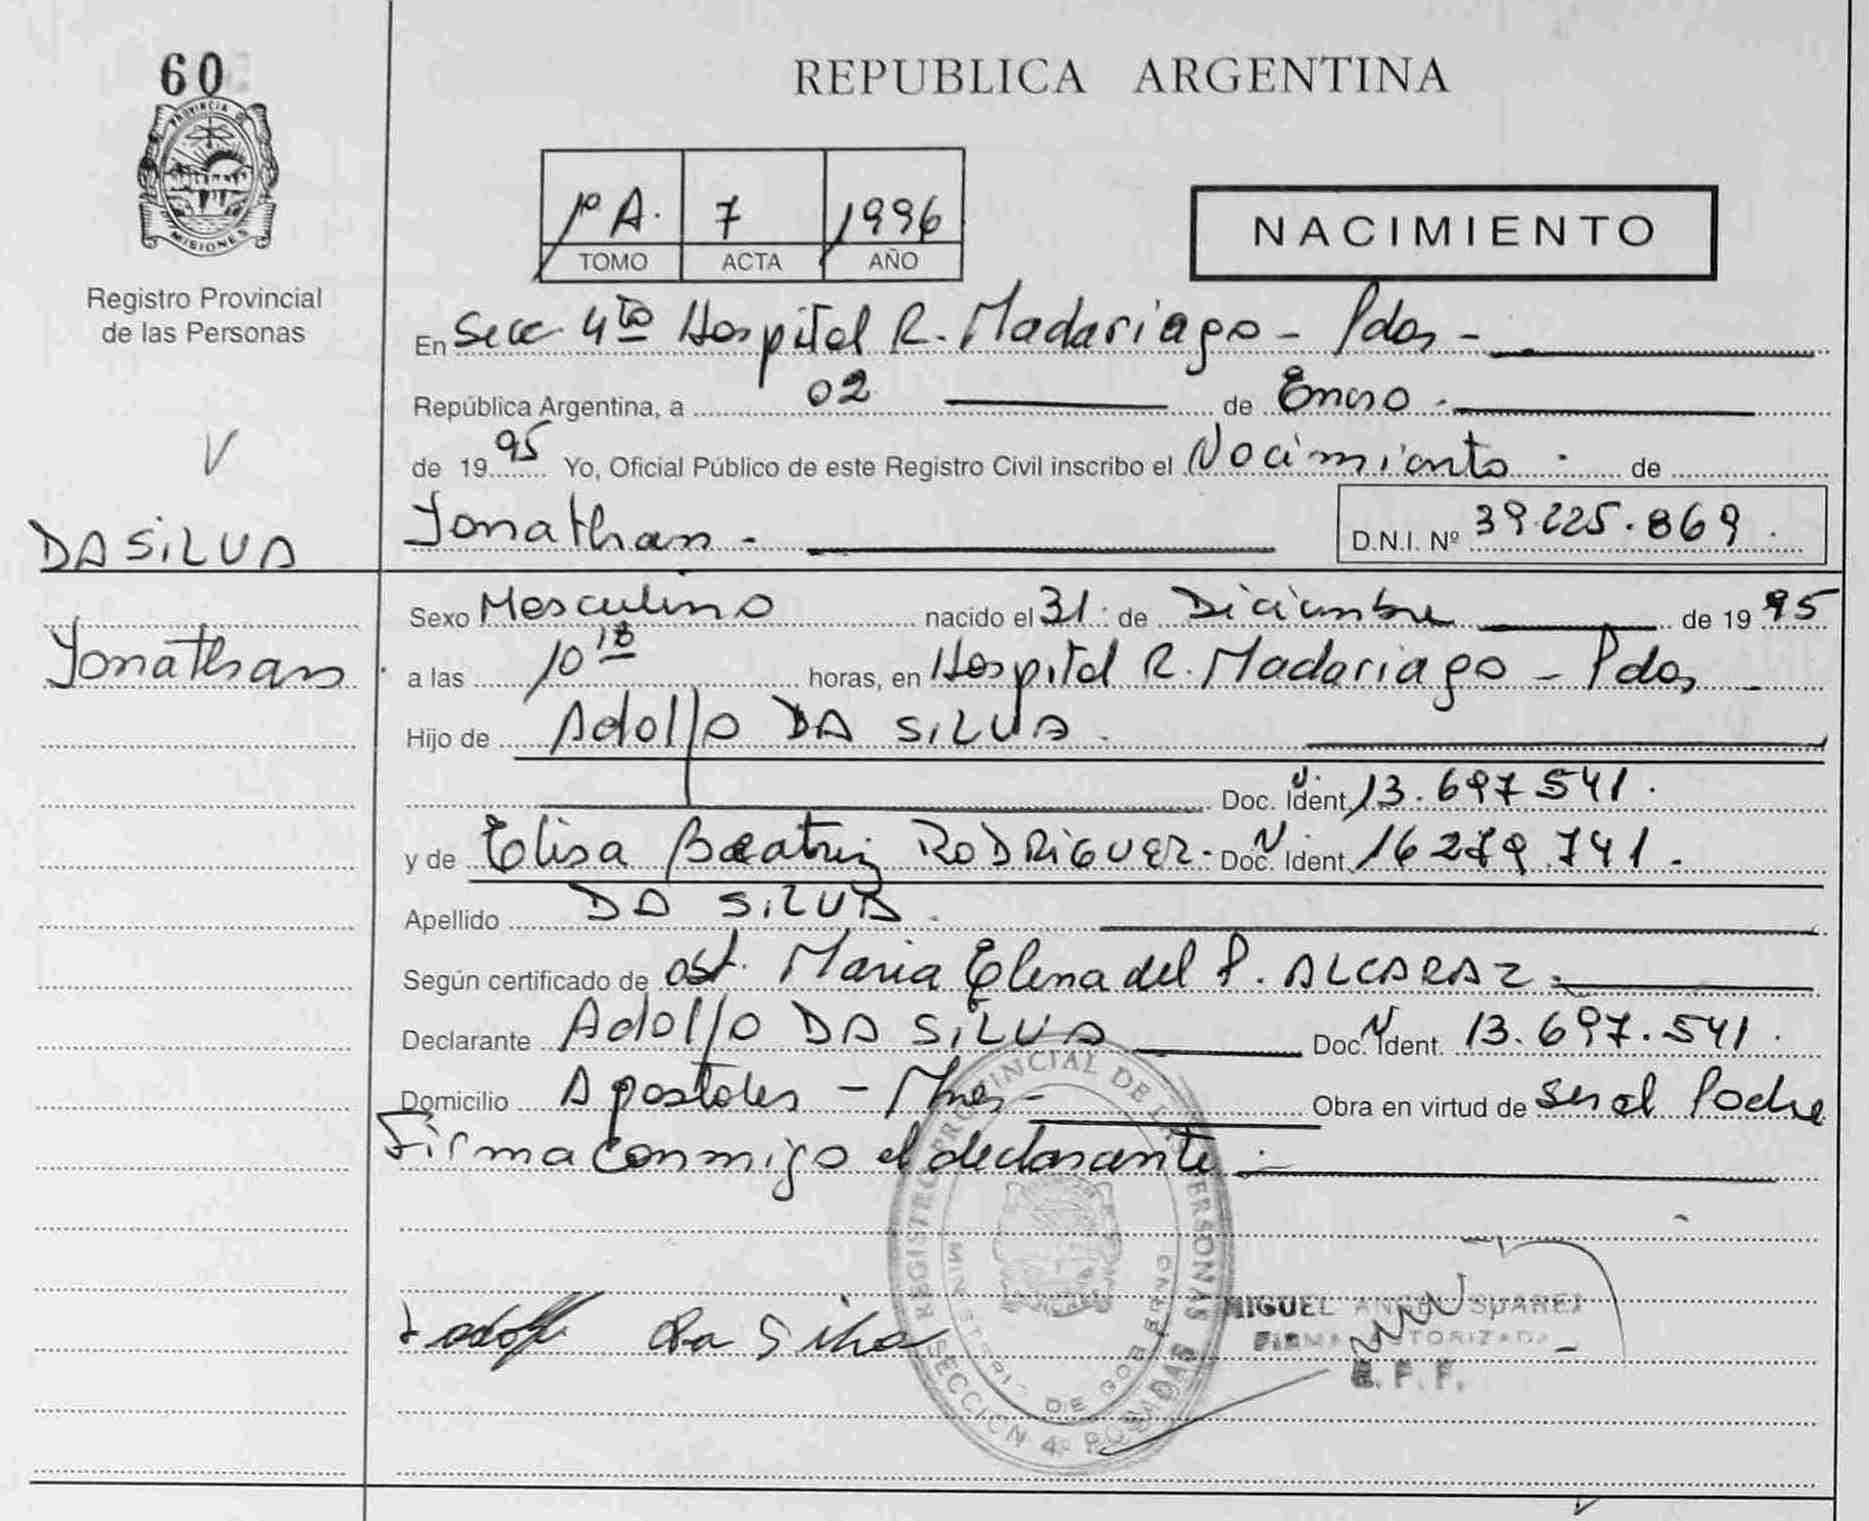 60
PROVINCIA
MISIONES
Registro Provincial
de las Personas
DA SILVA
Jonathan
REPUBLICA ARGENTINA
1º A. 7 1996
TOMO ACTA AÑO
NACIMIENTO
En Secc 4ta Hospital R. Madariaga - Pdas -
República Argentina, a 02 de Enero -
de 1995 Yo, Oficial Público de este Registro Civil inscribo el Nacimiento - de
Jonathan - D.N.I. Nº 39.225.869.
Sexo Masculino nacido el 31 de Diciembre de 1995
a las 10 18 horas, en Hospital R. Madariaga - Pdas -
Hijo de Adolfo DA SILVA.
Doc. Ident. 13.697541.
y de Elisa Beatriz RODRIGUEZ - Doc. Ident. 16279.741.
Apellido DA SILVA.
Según certificado de ost. Maria Elena del P. ALCARAZ.
Declarante Adolfo DA SILVA Doc. Ident. 13.697.541.
Domicilio Apostoles - Mnes - Obra en virtud de ser el Padre
Firma conmigo el declarante.
REGISTRO PROVINCIAL DE LAS PERSONAS
MINISTERIO DE GOBIERNO
SECCION 4º POSADAS
da Silva
MIGUEL ANGEL SUAREZ
FIRMA AUTORIZADA
R. F. F.